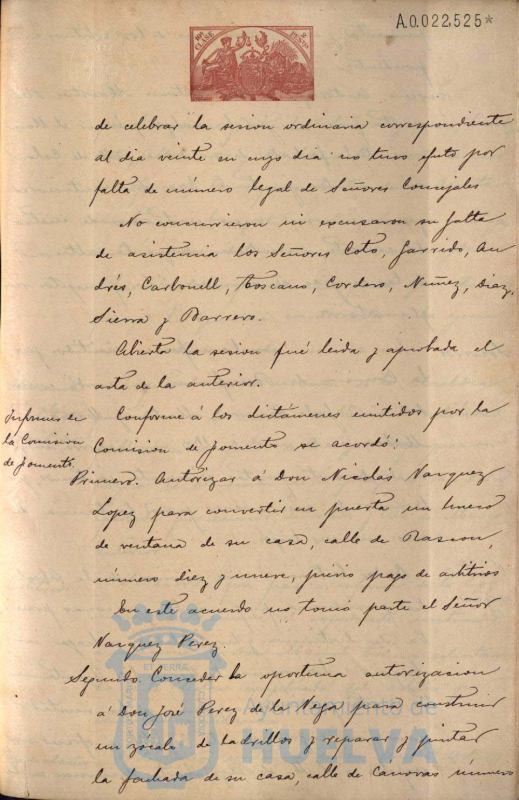 A.0.022,525*
10ª CLASE 2 PESETAS
de celebrar la sesion ordinaria correspondiente
al dia veinte en cuyo dia no tuvo efecto por
falta de número legal de Señores Concejales
No concurrieron ni excusaron su falta
de asistencia los Señores Coto, Garrido, An
drés, Carbonell, Toscano, Cordero, Nuñez, Diaz,
Sierra y Barrero.
Abierta la sesion fué leida y aprobada el
acta de la anterior.
Informes de
la Comision
de fomento.
Conforme á los dictámenes emitidos por la
Comision de fomento se acordó:
Primero. Autorizar á Don Nicolás Vazquez
Lopez para convertir en puerta un hueco
de ventana de su casa, calle de Rascon,
número diez y nueve, prévio pago de arbitrios
En este acuerdo no tomó parte el Señor
Vazquez Perez.
Segundo. Conceder la oportuna autorizacion
á Don José Perez de la Vega para construir
un zócalo de ladrillos y reparar y pintar
la fachada de su casa, calle de Cánovas número
Ayuntamiento de
HUELVA